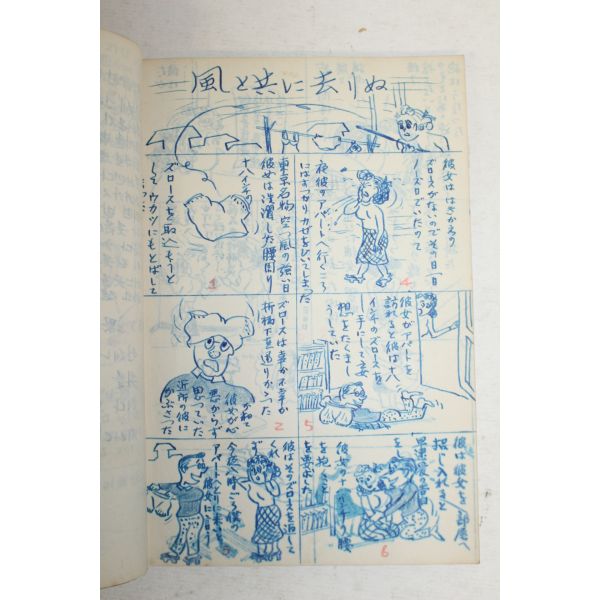 風と共に去りぬ
東京名物空っ風の強い日
彼女は洗濯した腰周り
十八インチ
ズロースを取込もうと
して ウカツにもとばして
しまった
1
ズロースは幸か不幸か
折柄下を通りかかった
かねて
彼女が心
悪からず
思っていた
近所の彼に
かぶさった
2
彼はそのズロースを返して
くれ
今夜八時ごろ僕の
アパートへとりに来いと
彼女に言う
彼女ははきがえの
ズロースがないのでその日一日
ノーズロでいたので
夜彼のアパートへ行くころ
にはすっかりカゼをひいてしまった
4
彼女がアパートを
訪れると彼は大
インチのズロースを
手にして妄
想をたくまし
うしていた
5
彼は彼女を部屋へ
招じ入れると
早速
彼女の
腰
を抱き
を要求した
6